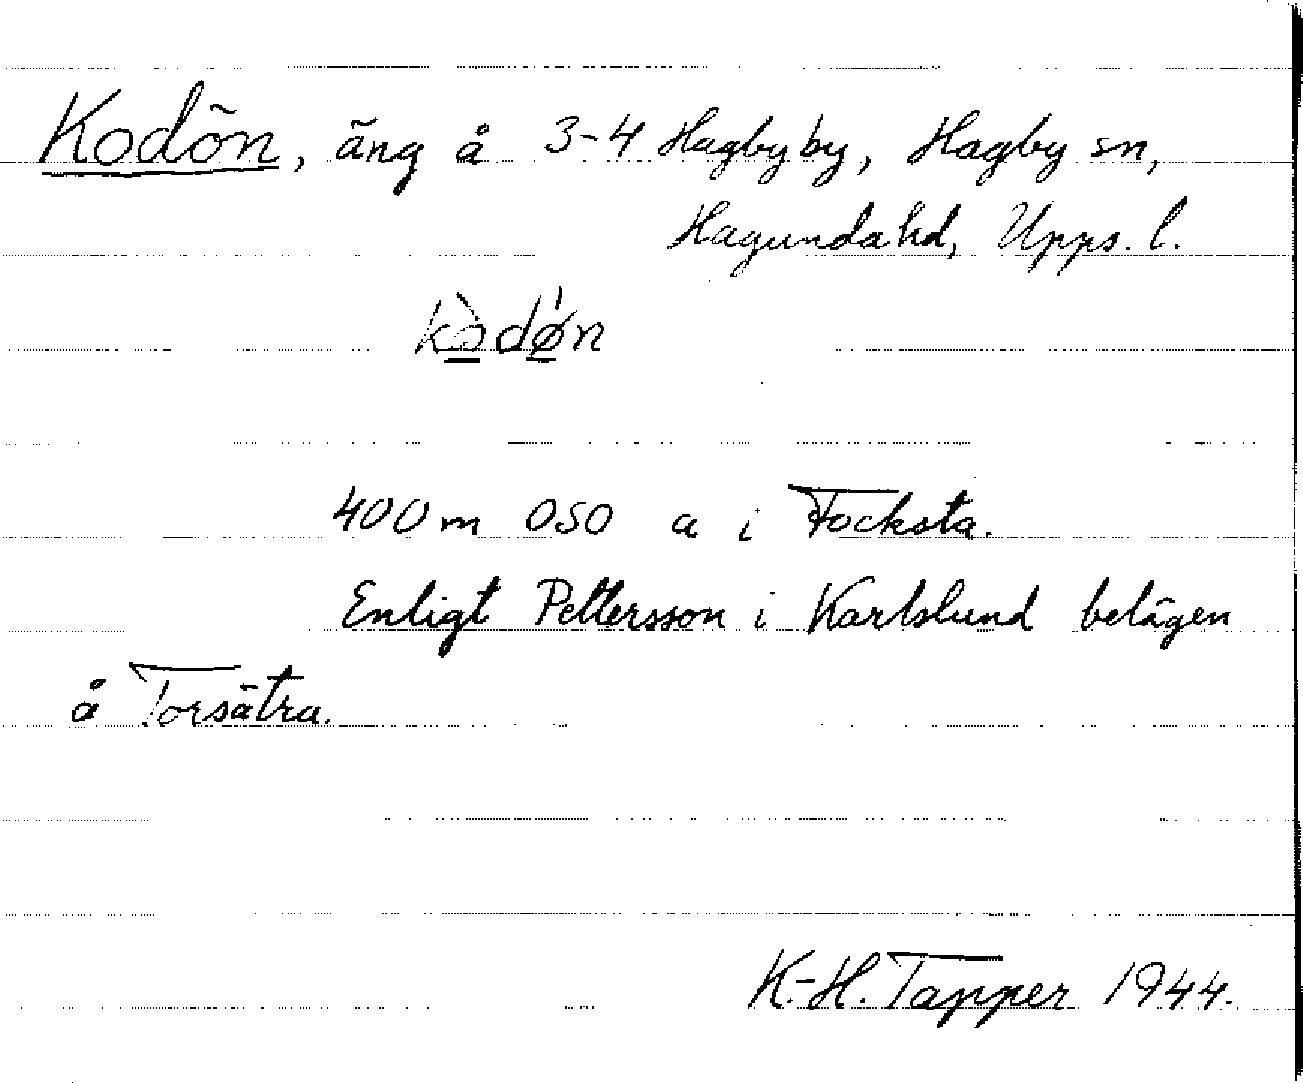 Kodön, äng å 3-4 Hagby by, Hagby sn,
Hagunda hd, Upps. l.
kòdǿn
400 m OSO a i Focksta.
Enligt Pettersson i Karlslund belägen
å Torsätra.
K.-H. Tapper 1944.